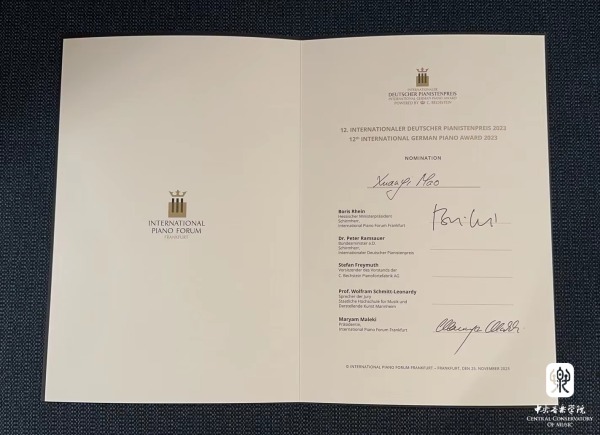 INTERNATIONAL
PIANO FORUM
FRANKFURT
INTERNATIONALER
DEUTSCHER PIANISTENPREIS
INTERNATIONAL GERMAN PIANO AWARD
POWERED BY C. BECHSTEIN
12. INTERNATIONALER DEUTSCHER PIANISTENPREIS 2023
12th INTERNATIONAL GERMAN PIANO AWARD 2023
NOMINATION
Xuanyi Mao
Boris Rhein
Hessischer Ministerpräsident
Schirmherr,
International Piano Forum Frankfurt
Dr. Peter Ramsauer
Bundesminister a.D.
Schirmherr,
Internationaler Deutscher Pianistenpreis
Stefan Freymuth
Vorsitzender des Vorstands der
C. Bechstein Pianofortefabrik AG
Prof. Wolfram Schmitt-Leonardy
Sprecher der Jury
Staatliche Hochschule für Musik und
Darstellende Kunst Mannheim
Maryam Maleki
Präsidentin,
International Piano Forum Frankfurt
© INTERNATIONAL PIANO FORUM FRANKFURT – FRANKFURT, DEN 25. NOVEMBER 2023
中央音乐学院
CENTRAL CONSERVATORY
OF MUSIC